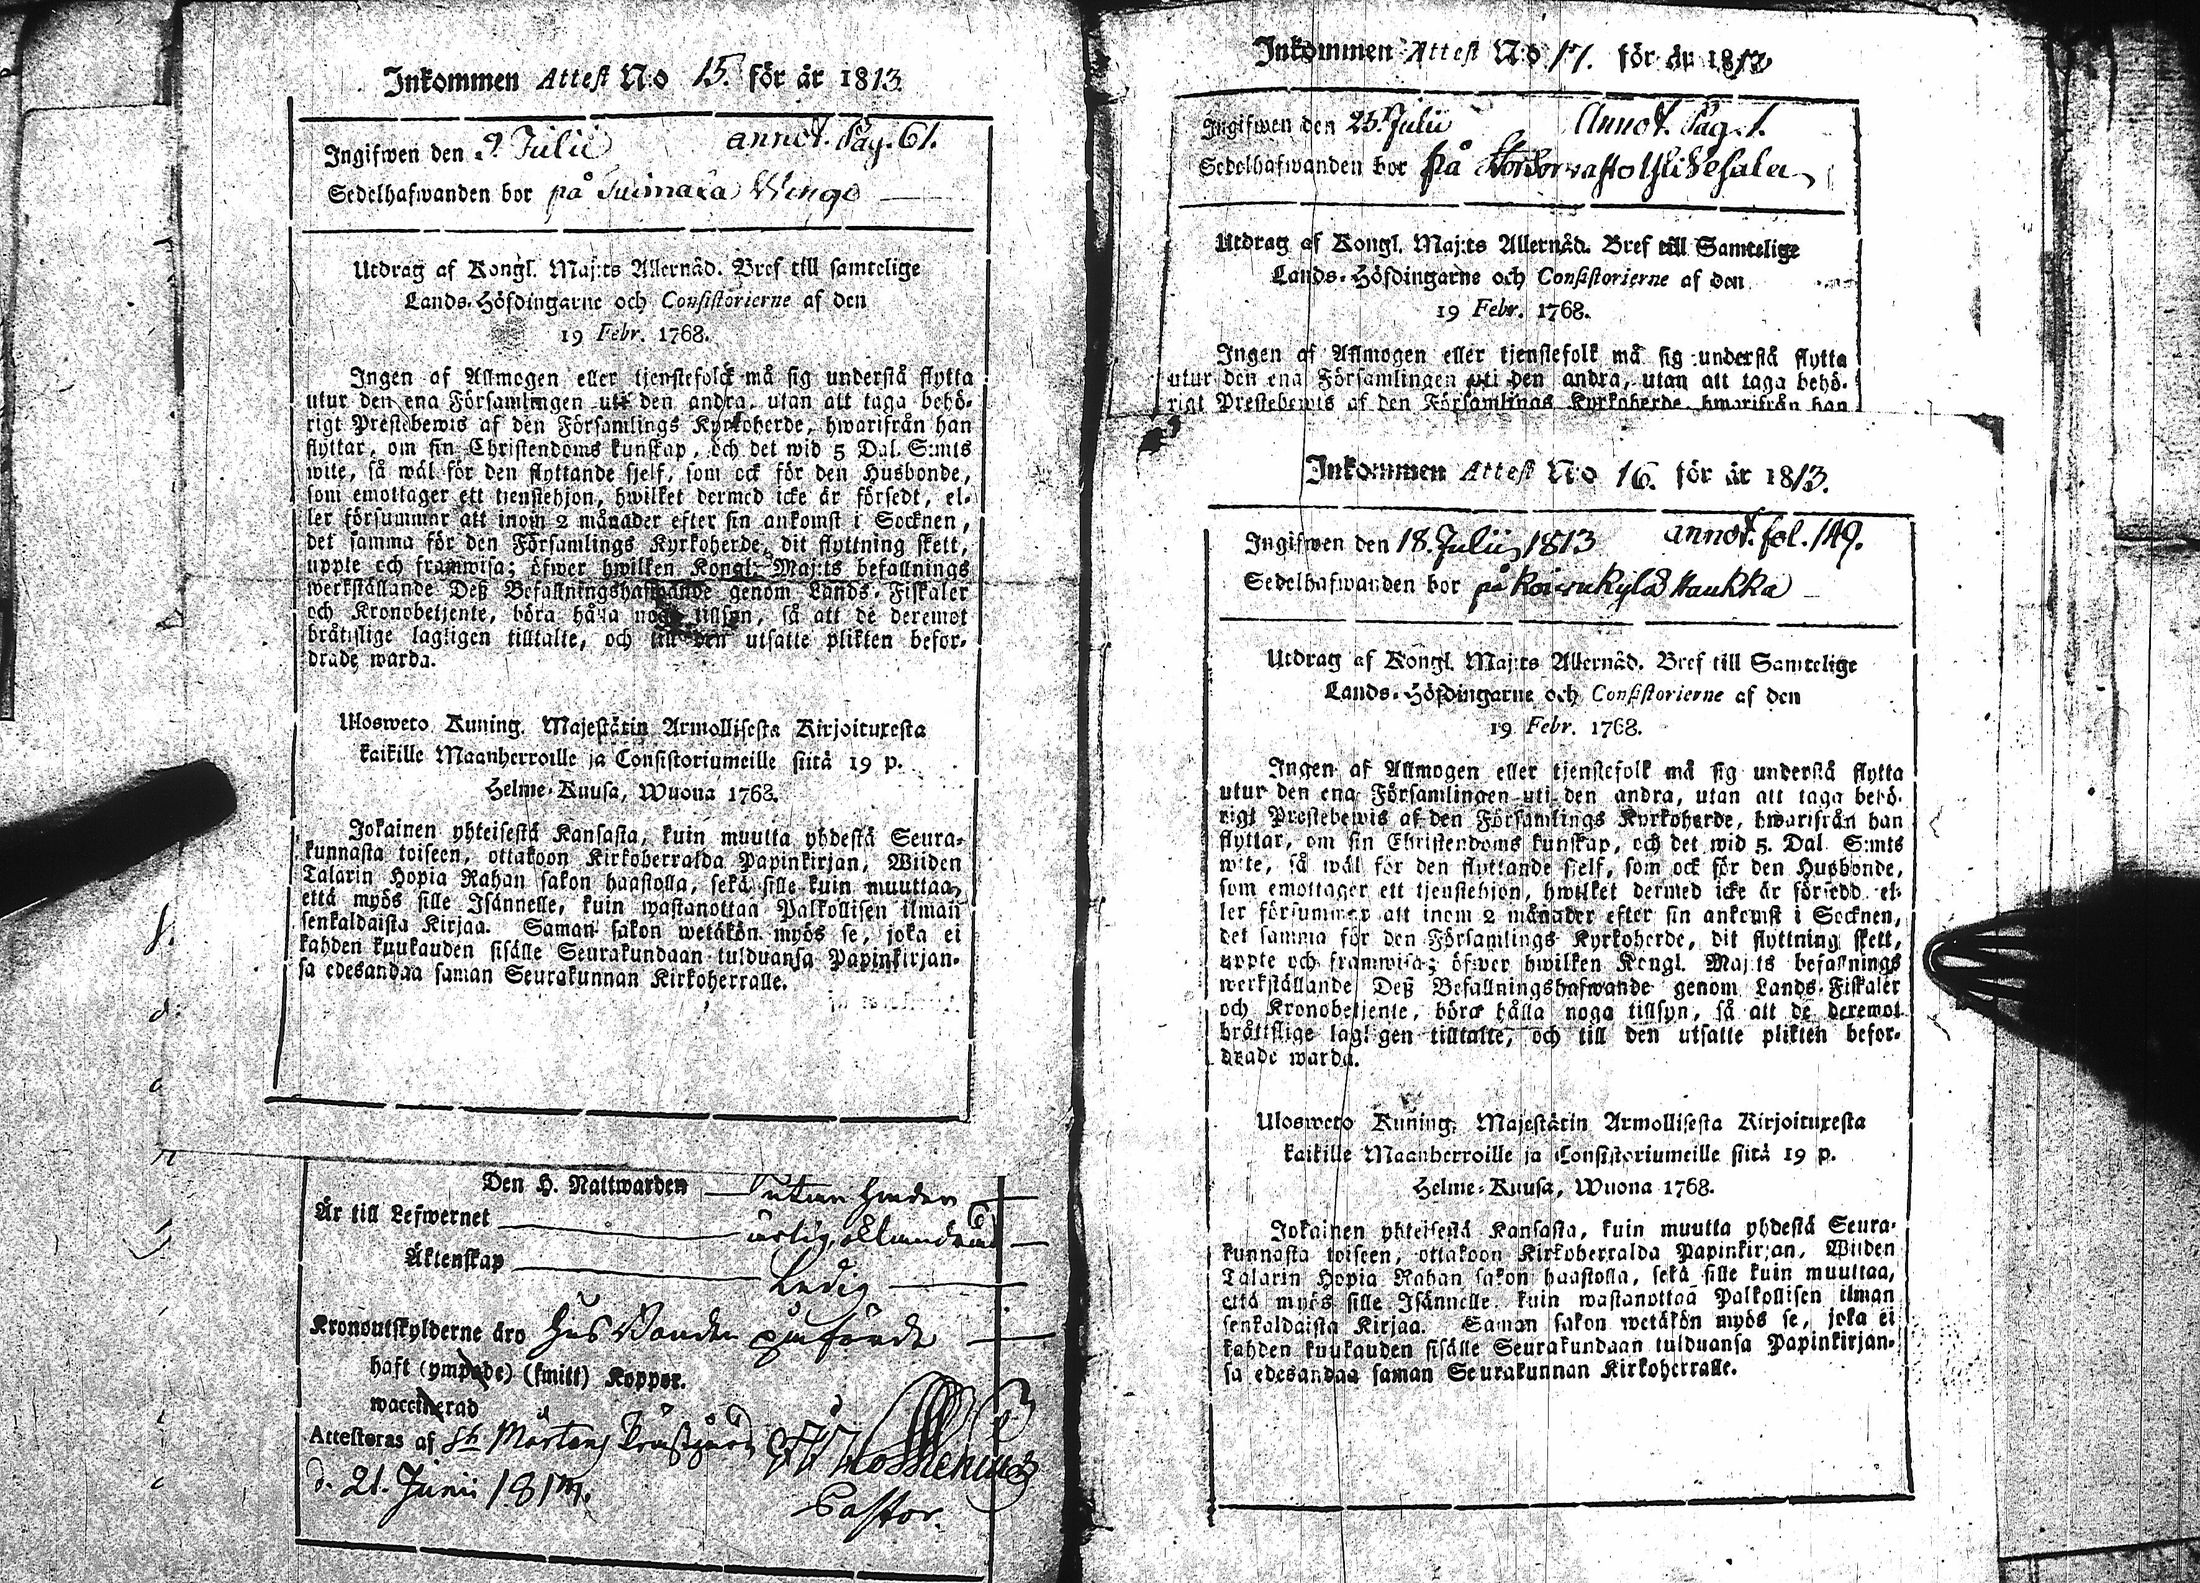 Inkommen Attest N:o 15. för år 1813.
Ingifwen den 9 Julii annot. Pag. 61.
Sedelhafwanden bor på
Utdrag af Kongl. Maj:ts Allernåd. Bref till samtelige
Lands-Höfdingarne och Consistorierne af den
19 Febr. 1768.
Ingen af Allmogen eller tjenstefolck må sig understå flytta
utur den ena Församlingen uti den andra, utan att taga behö-
rigt Prestebewis af den Församlings Kyrkoherde, hwarifrån han
flyttar, om sin Christendoms kunskap, och det wid 5 Dal. S:mts
wite, så wäl för den flyttande sjelf, som ock för den Husbonde,
som emottager ett tjenstehjon, hwilket dermed icke är försedt, el-
ler försummar att inom 2 månader efter sin ankomst i Socknen,
det samma för den Församlings Kyrkoherde, dit flyttning skett,
uppte och framwisa; öfwer hwilken Kongl. Maj:ts befallnings
werkställande Deß Befallningshafwande genom Lands-Fiskaler
och Kronobetjente, böra hålla noga tillsyn, så att de deremot
bråttslige lagligen tilltalte, och till den utsatte plikten befor-
drade warda.
Ulosweto Kuning. Majestätin Armollisesta Kirjoituxesta
kaikille Maanherroille ja Consistoriumeille siitä 19 p.
Helme-Kuusa, Wuona 1768.
Jokainen yhteisestä Kansasta, kuin muutta yhdestä Seura-
kunnasta toiseen, ottakoon Kirkoherralda Papinkirjan, Wiiden
Talarin Hopia Rahan sakon haastolla, sekä sille kuin muuttaa,
että myös sille Isännelle, kuin wastanottaa Palkollisen ilman
senkaldaista Kirjaa. Saman sakon wetäkön myös se, joka ei
kahden kuukauden sisälle Seurakundaan tulduansa Papinkirjan-
sa edesandaa saman Seurakunnan Kirkoherralle.
Den H. Nattwarden utan hinder
Är till Lefwernet ärlig
Äktenskap Ledig
Kronoutskylderne äro
haft (ympade) (smitt) Koppor.
waccinerad
Attesteras af St Mårtens Prästgård
d. 21. Junii 1813. Pastor.
Inkommen Attest N:o 17. för år 1813
Ingifwen den 25. Julii Annot. Pag. 1.
Sedelhafwanden bor på
Utdrag af Kongl. Maj:ts Allernåd. Bref till Samtelige
Lands-Höfdingarne och Consistorierne af den
19 Febr. 1768.
Ingen af Allmogen eller tjenstefolk må sig understå flytta
utur den ena Församlingen uti den andra, utan att taga behö-
rigt Prestebewis af den Församlings Kyrkoherde, hwarifrån han
Inkommen Attest N:o 16. för år 1813.
Ingifwen den 18. Julii 1813 annot. fol. 149.
Sedelhafwanden bor på Haukka
Utdrag af Kongl. Maj:ts Allernåd. Bref till Samtelige
Lands-Höfdingarne och Consistorierne af den
19 Febr. 1768.
Ingen af Allmogen eller tjenstefolk må sig understå flytta
utur den ena Församlingen uti den andra, utan att taga behö-
rigt Prestebewis af den Församlings Kyrkoherde, hwarifrån han
flyttar, om sin Christendoms kunskap, och det wid 5. Dal. S:mts
wite, så wäl för den flyttande sjelf, som ock för den Husbonde,
som emottager ett tjenstehjon, hwilket dermed icke är försedd el-
ler försummer att inom 2 månader efter sin ankomst i Socknen,
det samma för den Församlings Kyrkoherde, dit flyttning skett,
uppte och framwisa; öfwer hwilken Kongl. Maj:ts befallnings
werkställande Deß Befallningshafwande genom Lands-Fiskaler
och Kronobetjente, böra hålla noga tillsyn, så att de deremot
bråttslige lagligen tilltalte, och till den utsatte plikten befor-
drade warda.
Ulosweto Kuning. Majestätin Armollisesta Kirjoituxesta
kaikille Maanherroille ja Consistoriumeille siitä 19 p.
Helme-Kuusa, Wuona 1768.
Jokainen yhteisestä Kansasta, kuin muutta yhdestä Seura-
kunnasta toiseen, ottakoon Kirkoherralda Papinkirjan, Wiiden
Talarin Hopia Rahan sakon haastolla, sekä sille kuin muuttaa,
että myös sille Isännelle, kuin wastanottaa Palkollisen ilman
senkaldaista Kirjaa. Saman sakon wetäkön myös se, joka ei
kahden kuukauden sisälle Seurakundaan tulduansa Papinkirjan-
sa edesandaa saman Seurakunnan Kirkoherralle.